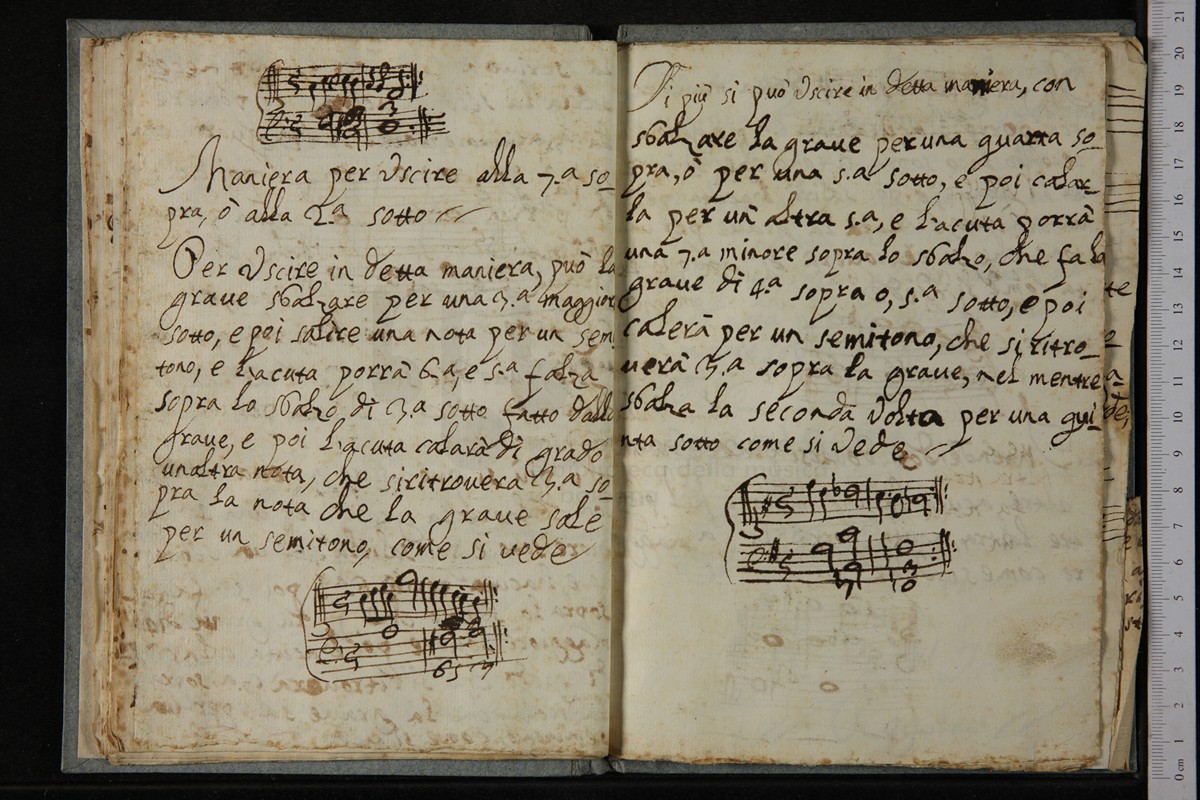 Maniera per Uscire alla 7.a so-
pra, ò alla 2.a sotto
Per Uscire in detta maniera, può la
graue sbalzare per una 3.a maggior
sotto, e poi salire una nota per un sem
tono, e l'acuta porrà 6.a, e 5.a falza
sopra lo sbalzo di 3.a sotto fatto dalla
graue, e poi l'acuta calarà di grado
un'altra nota, che si ritrouerà 3.a so-
pra la nota che la graue sale
per un semitono, come si uede
6 5 3
Di più si può Uscire in detta maniera, con
sbalzare la graue per una quarta so-
pra, ò per una 5.a sotto, e poi calar-
la per un'altra 5.a, e l'acuta porrà
una 7.a minore sopra lo sbalzo, che fa la
graue di 4.a sopra o, 5.a sotto, e poi
calerà per un semitono, che si ritro-
uerà 3.a sopra la graue, nel mentre
sbalza la seconda Volta per una qui-
nta sotto come si Vede
7 3